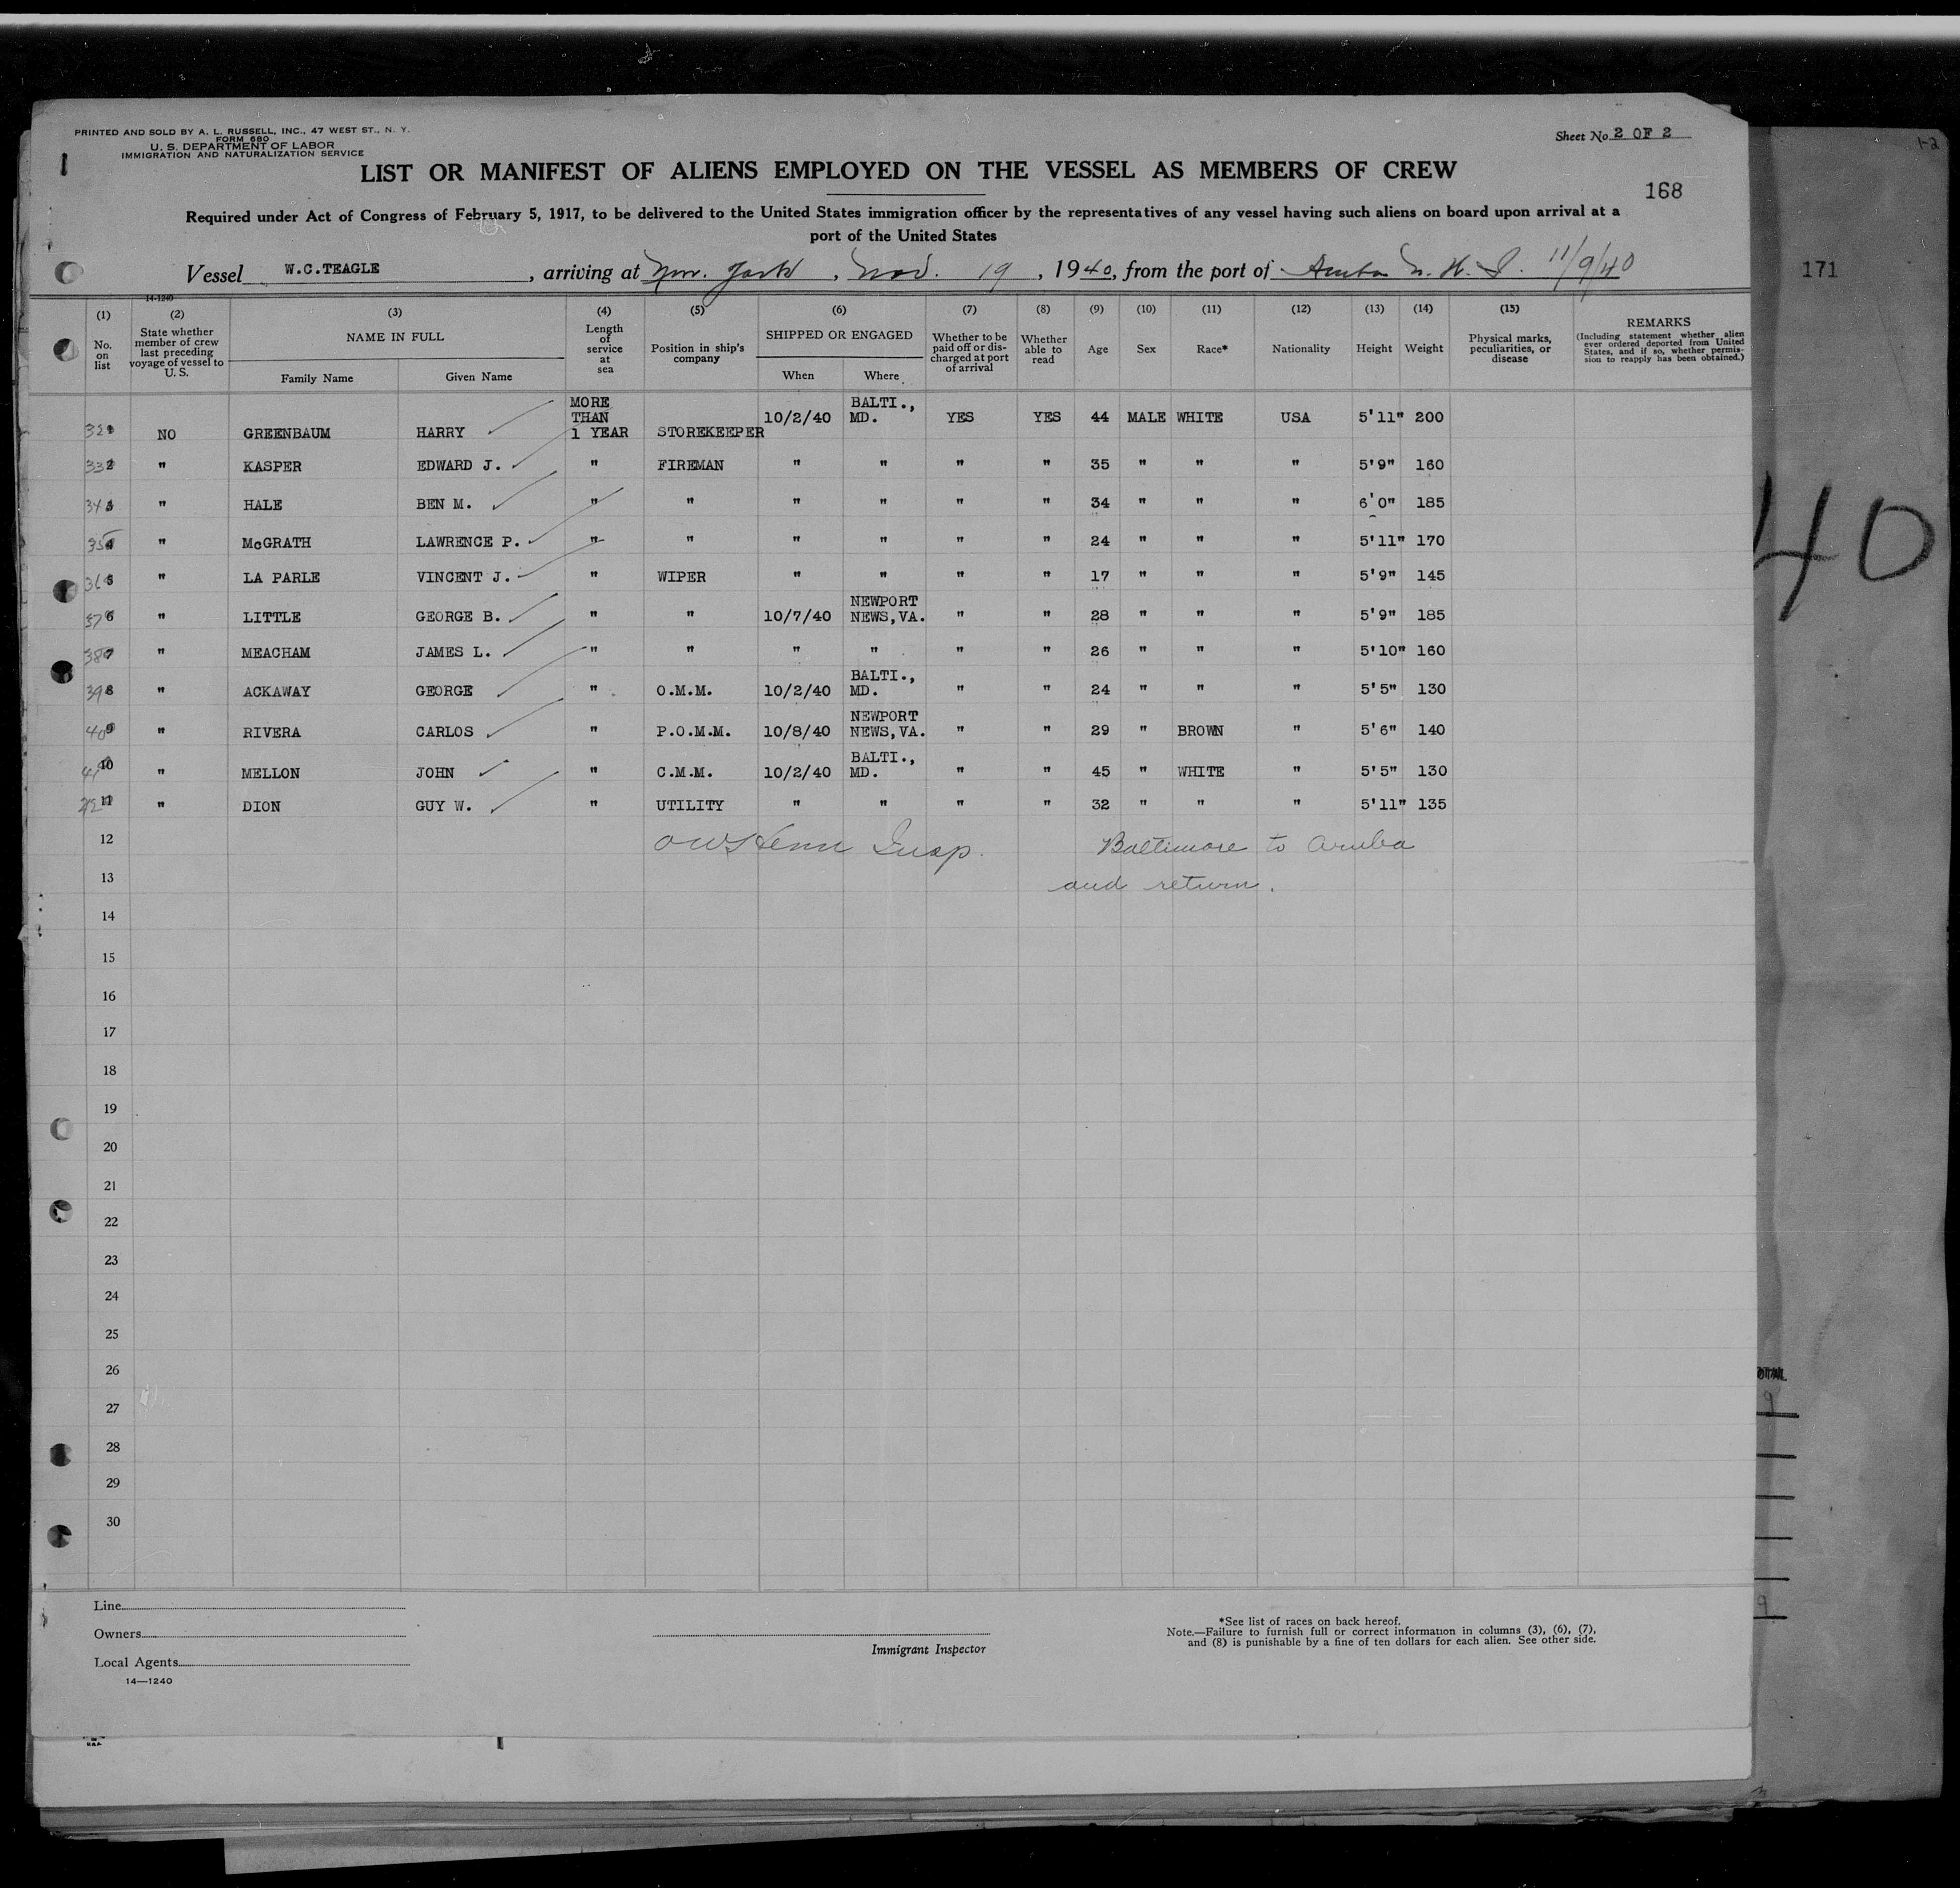 PRINTED AND SOLD BY A. L. RUSSELL, INC., 47 WEST ST., N. Y.
FORM 680
U. S. DEPARTMENT OF LABOR
IMMIGRATION AND NATURALIZATION SERVICE
Sheet No. 2 OF 2
1-2
LIST OR MANIFEST OF ALIENS EMPLOYED ON THE VESSEL AS MEMBERS OF CREW
168
Required under Act of Congress of February 5, 1917, to be delivered to the United States immigration officer by the representatives of any vessel having such aliens on board upon arrival at a
port of the United States
Vessel W.C.TEAGLE, arriving at New York, Nov. 19, 1940, from the port of Aruba N. W. I. 11/9/40
171
14-1240
(1) (2) (3) (4) (5) (6) (7) (8) (9) (10) (11) (12) (13) (14) (15)
No. on list
State whether member of crew last preceding voyage of vessel to U. S.
NAME IN FULL
Family Name Given Name
Length of service at sea
Position in ship's company
SHIPPED OR ENGAGED
When Where
Whether to be paid off or discharged at port of arrival
Whether able to read
Age Sex Race* Nationality Height Weight
Physical marks, peculiarities, or disease
REMARKS
(Including statement whether alien ever ordered deported from United States, and if so, whether permission to reapply has been obtained.)
32 NO GREENBAUM HARRY MORE THAN 1 YEAR STOREKEEPER 10/2/40 BALTI., MD. YES YES 44 MALE WHITE USA 5'11" 200
33 2 " KASPER EDWARD J. " FIREMAN " " " " 35 " " " 5'9" 160
34 3 " HALE BEN M. " " " " " " 34 " " " 6'0" 185
35 4 " McGRATH LAWRENCE P. " " " " " " 24 " " " 5'11" 170
36 5 " LA PARLE VINCENT J. " WIPER " " " " 17 " " " 5'9" 145
37 6 " LITTLE GEORGE B. " " 10/7/40 NEWPORT NEWS,VA. " " 28 " " " 5'9" 185
38 7 " MEACHAM JAMES L. " " " " " " 26 " " " 5'10" 160
39 8 " ACKAWAY GEORGE " O.M.M. 10/2/40 BALTI., MD. " " 24 " " " 5'5" 130
40 9 " RIVERA CARLOS " P.O.M.M. 10/8/40 NEWPORT NEWS,VA. " " 29 " BROWN " 5'6" 140
41 10 " MELLON JOHN " C.M.M. 10/2/40 BALTI., MD. " " 45 " WHITE " 5'5" 130
42 11 " DION GUY W. " UTILITY " " " " 32 " " " 5'11" 135
12 Insp. Baltimore to Aruba
13 and return.
14
15
16
17
18
19
20
21
22
23
24
25
26
27
28
29
30
40
9
9
Line
Owners
Local Agents
14—1240
Immigrant Inspector
*See list of races on back hereof.
Note.—Failure to furnish full or correct information in columns (3), (6), (7),
and (8) is punishable by a fine of ten dollars for each alien. See other side.